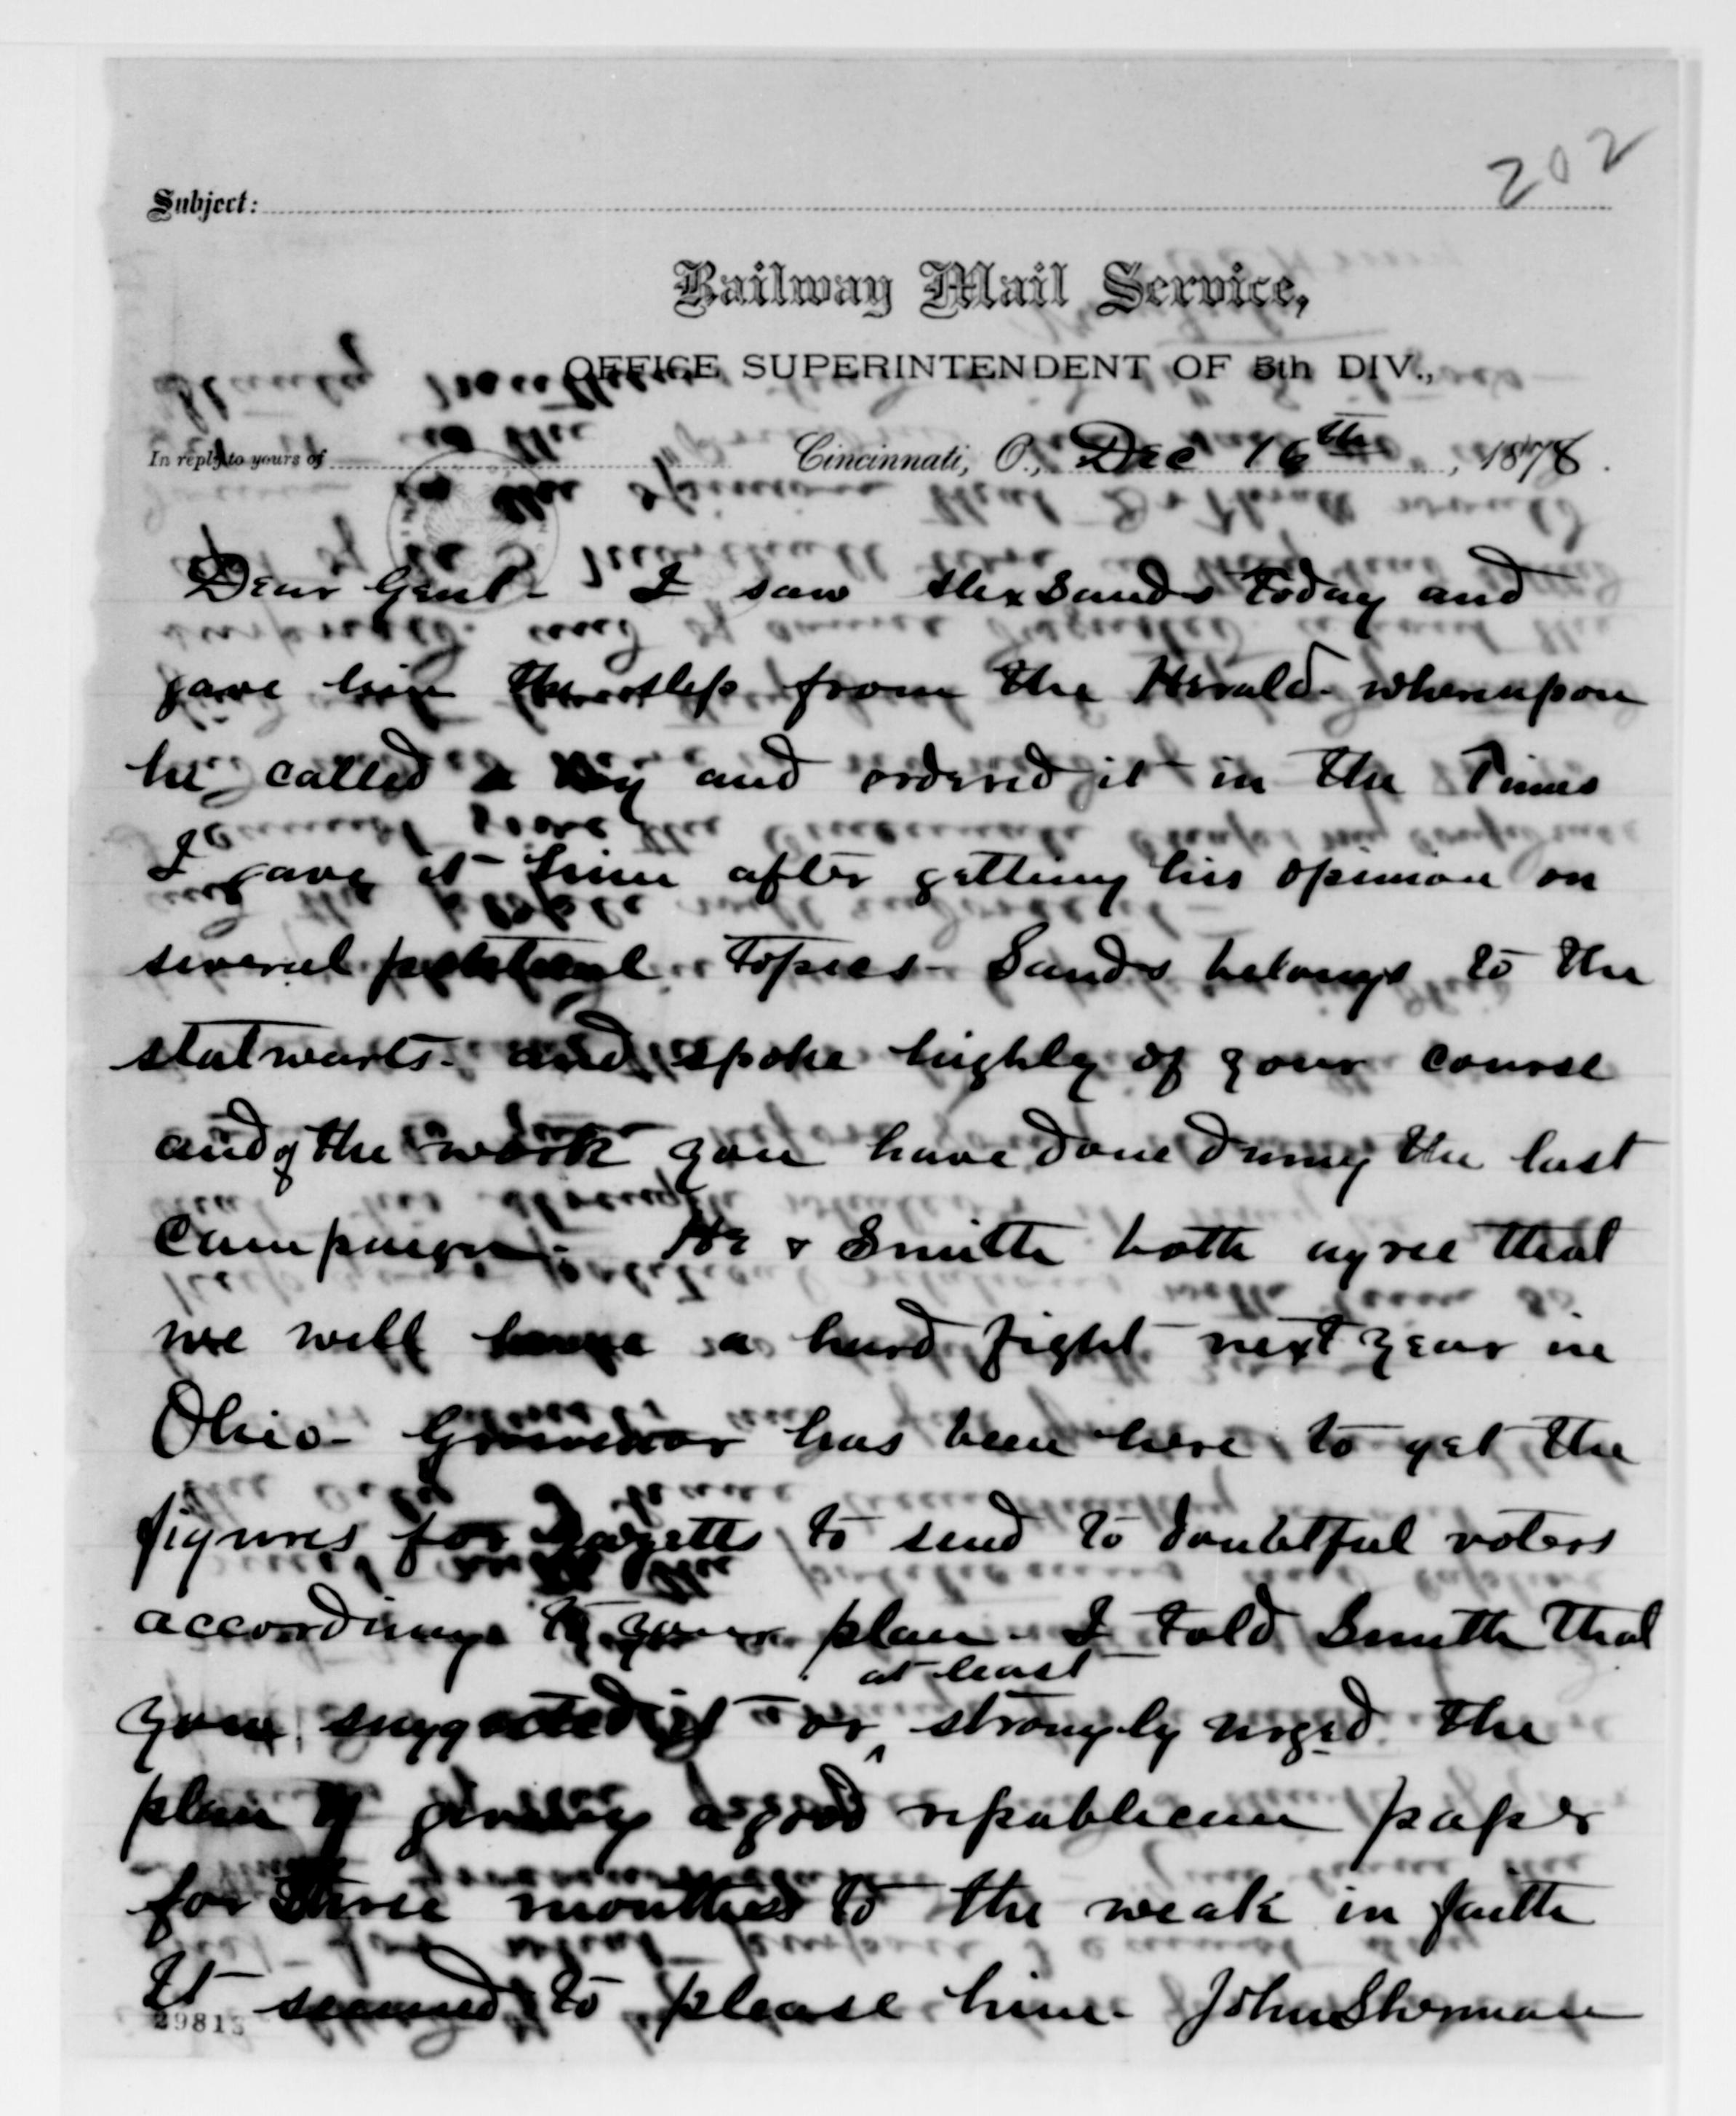 202
Subject:
Railway Mail Service,
OFFICE SUPERINTENDENT OF 5th DIV.,
In reply to yours of Cincinnati, O., Dec 16th, 1878.
Dear Genl- I saw Alex Sands today and
gave him the slip from the Herald- whereupon
he called a boy and ordered it in the Times
I gave it him after getting his opinion on
several political topics- Sands belongs to the
stalwarts- and spoke highly of your course
and of the work you have done during the last
Campaign- He & Smith both agree that
we will have a hard fight next year in
Ohio- Grosvenor has been here to get the
figures for Gazette to send to doubtful voters
according to your plan- I told Smith that
at least
you suggested it - or ^ strongly urged the
plan of giving a good republican paper
for three months to the weak in faith
It seemed to please him- John Sherman
29813